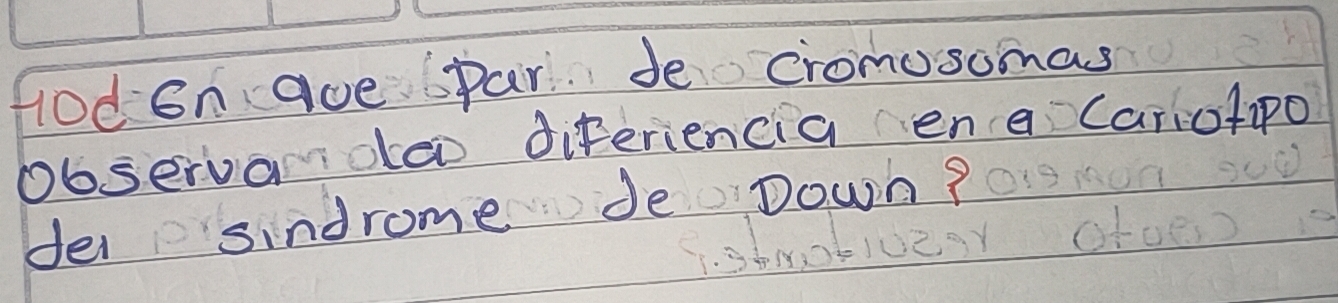 10d En que par de cromosomas
observa la diferiencia en e cariotipo
del sindrome de Down?